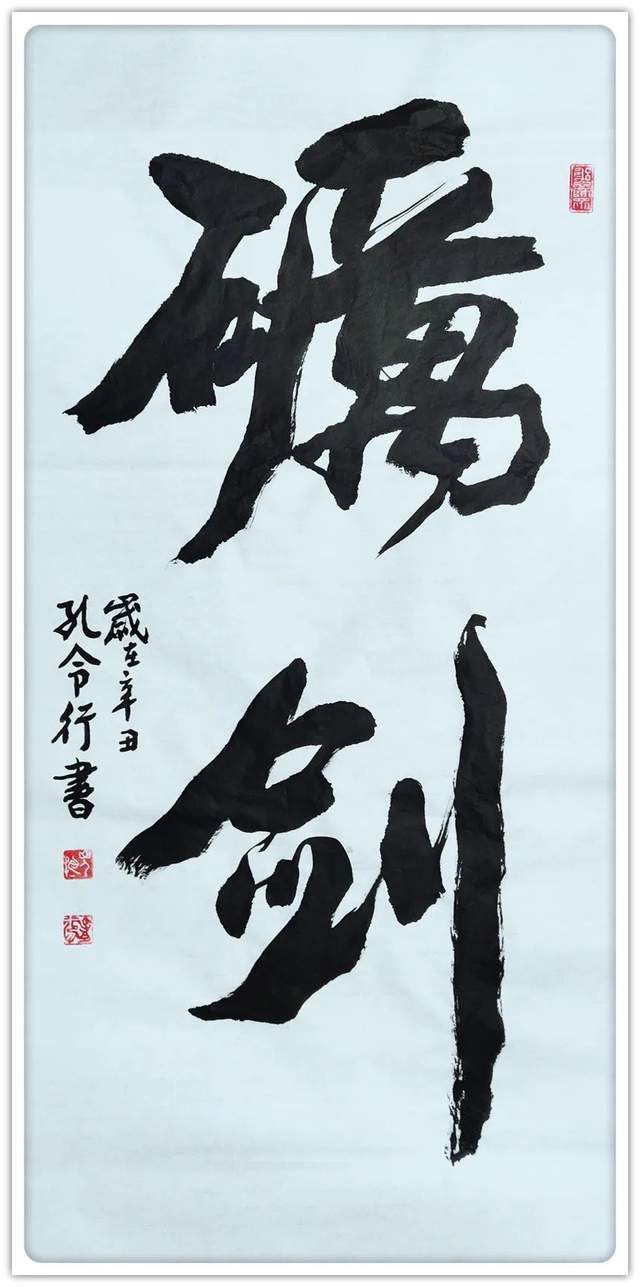 礪劍
歲在辛丑
孔令行書